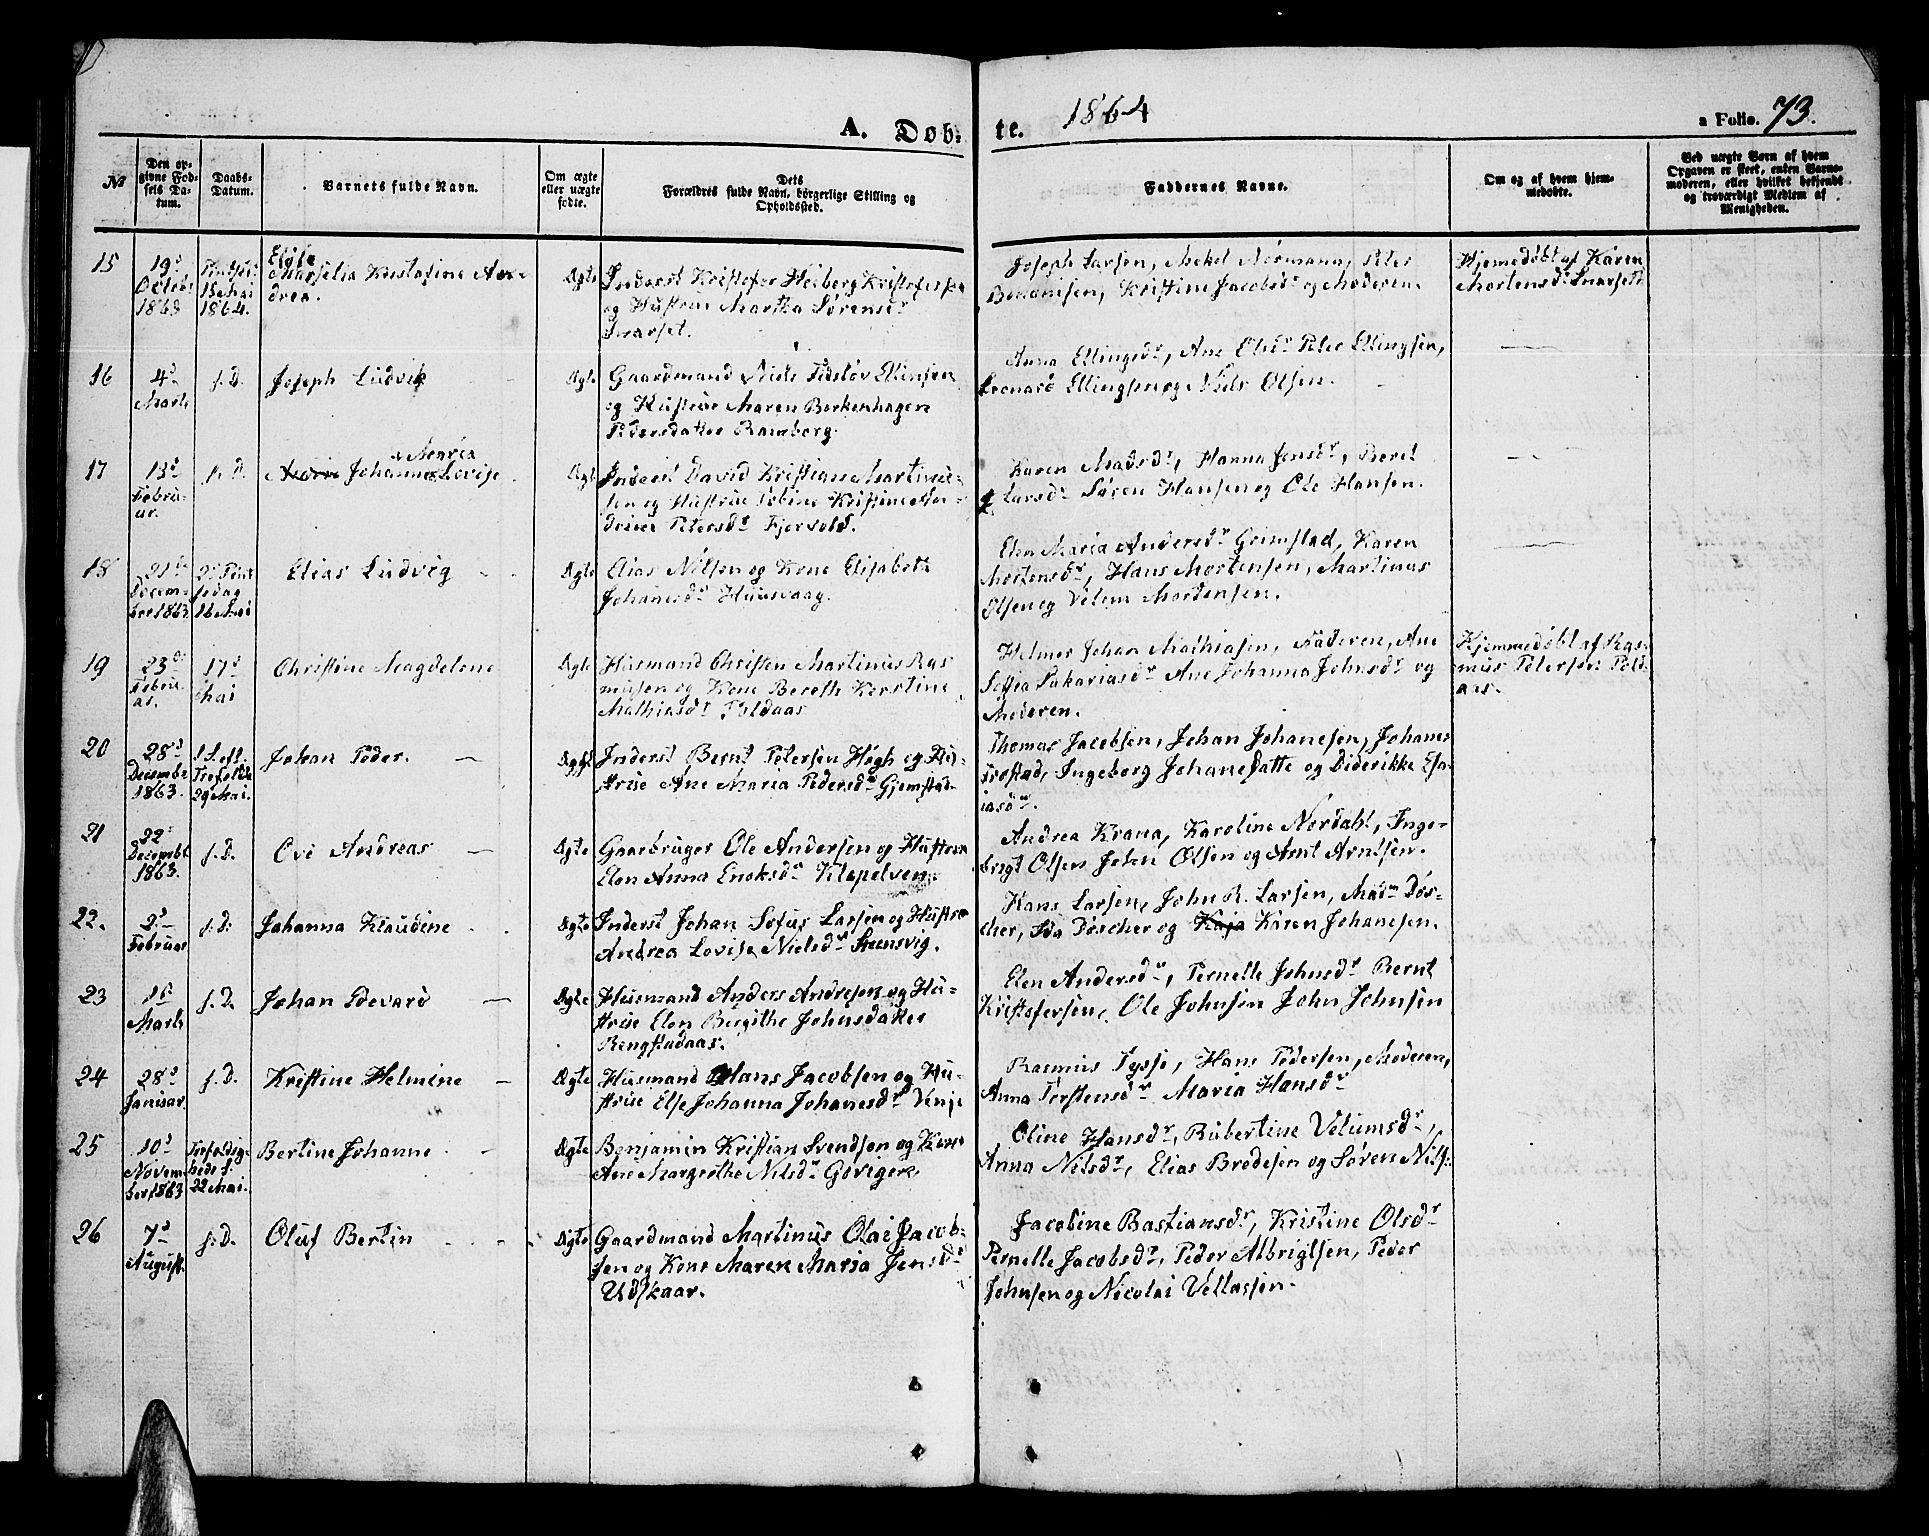 1864
A. Døb-
te.
a Folio. 73.
No
Den op-
givne Fød-
sels Da-
tum.
Daabs-
Datum.
Barnets fulde Navn.
Om ægte
eller uægte
fødte.
Dets
Forældres fulde Navn, borgerlige Stilling og
Opholdssted.
Faddernes Navne.
Om og af hvem hjem-
medøbte.
Ved uægte Børn af hvem
Opgaven er skeet, enten Barne-
moderen, eller hvilket bekjendt
og troværdigt Medlem af
Menigheden.
15
19d
Octobr
1863
15 Mai
1864.
Marselia Kristofine An-
drea.
Ægte
Inderst Kristofer Heiberg Kristofersen
og Hustrue Martha Sørensdr
Snarset.
Joseph Larsen, Mekel Normann, Peter
Bendixsen, Kristine Jacobsdr og Moderen.
Hjemmedøbt af Karen
Mortensdr Snarset
16
4d
Marts
s. D.
Joseph Ludvik
Ægte
Gaardmand Niels Fidsløv Ellinsen
og Hustrue Maren Borkenhagen
Pedersdatter Ramberg.
Anna Ellingsdr, Ane Elisdr Peter Ellingsen,
Leonard Ellingsen og Niels Olsen.
17
13d
Febru-
ar.
s. D.
Johanna Lovise
Andrea
Ægte
Inderst David Kristian Martinus-
sen og Hustrue Jobine Kristine Hen-
drine Petersdr Fjervold.
Karen Madsdr, Hanna Jensdr, Beret
Larsdr Søren Hansen og Ole Hansen.
18
21de
Decem-
ber 1863
2d Pint
sedag
16 Mai
Elias Ludvig
Ægte
Elias Nilsen og Kone Elisabeth
Johanesdr Huusvaag.
Elen Maria Andersdr Grimstad, Karen
Mortensdr, Hans Mortensen, Martinus
Olsen og Velem Mortensen.
19
23de
Februar.
17d
Mai
Christine Magdelene
Ægte
Husmand Christen Martinus Ras
musen og Kone Bereth Kerstine
Mathiasdr Foldaas
Helmer Johan Mathiasen, Faderen, Ane
Soffea Sakariasdr Ane Johanna Johnsdr og
Moderen.
Hjemmedøbt af Ras-
mus Petersen Fold-
aas.
20
28d
Decembr
1863.
Trefoldg
29 Mai.
Johan Peder.
Ægte
Inderst Bernt Petersen Høgh og Hu-
strue Ane Maria Pedersdr Gjemstad
Thomas Jacobsen, Johan Johanesen, Johanes
Frostad, Ingeborg Johane Satte og Diderikke Esa-
iasdr.
21
22d
Decembr
1863.
s. D.
Ove Andreas
Ægte
Gaarbruger Ole Andersen og Hustrue
Elen Anna Enoksdr Klepelven.
Andrea Krana, Karoline Nordahl, Inge-
brigt Olsen John Olsen og Arnt Arntsen.
22.
2d
Februar
s. D.
Johanna Klaudine
Ægte
Inderst Johan Sofus Larsen og Hustrue
Andrea Lovise Nielsdr Steensvig.
Hans Larsen, John R. Larsen, Madm Dos-
cher, Ida Doscher og Karen Johanesen.
23
15
Marts
s. D.
Johan Edevard
Ægte
Husmand Anders Andresen og Hu-
strue Elen Birgithe Johnsdatter
Rengstadaas.
Elen Andersdr, Pernelle Johnsdr Bernt
Kristofersen, Ole Johnsen John Johnsen
24
28d
Januar
s. D.
Kristine Helmine
Ægte
Husmand Hans Jacobsen og Hu-
strue Else Johanna Johanesdr Venje
Rasmus Tysse, Hans Pedersen, Moderen,
Anna Torstensdr Maria Hansdr
25
10d
Novem-
ber 1863
22 Mai.
Bertine Johanne
Ægte
Benjamin Kristian Svendsen og Kone
Ane Margrethe Nilsdr Goviger
Oline Hansdr, Rubertine Velumsdr,
Anna Nilsdr, Elias Brodesen og Søren Nils.
26
7d
August.
s. D.
Oluf Bertin
Ægte
Gaardmand Martinus Olai Jacob-
sen og Kone Maren Maria Jensdr
Udskaar.
Jacobine Bastiansdr, Kristine Olsdr
Pernelle Jacobsdr, Peder Albrigtsen, Peder
Johnsen og Nicolai Vellassen.